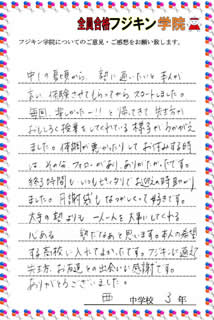 全員合格フジキン学院
フジキン学院についてのご意見・ご感想をお願い致します。
中1の夏頃から、塾に通いたいと本人が
言い、体験させてもらってからスタートしました。
毎回、楽しかったー!!と帰ってきて先生方が
おもしろく授業をしてくれている様子がうかがえ
ました。体調が悪かったりしてお休みする時
は、そのフォローがあり、ありがたかったです。
終了時間もいつもピッタリでお迎えの時助かり
ました。月謝袋もなつかしくて好きです。
大手の塾よりも一人一人を大事にしてくれる
心ある 塾だなぁと思います。本人の希望
する高校に入れてよかったです。フジキンに通え
先生方、お友達との出会いに感謝です。
ありがとうございました。
西 中学校 3年